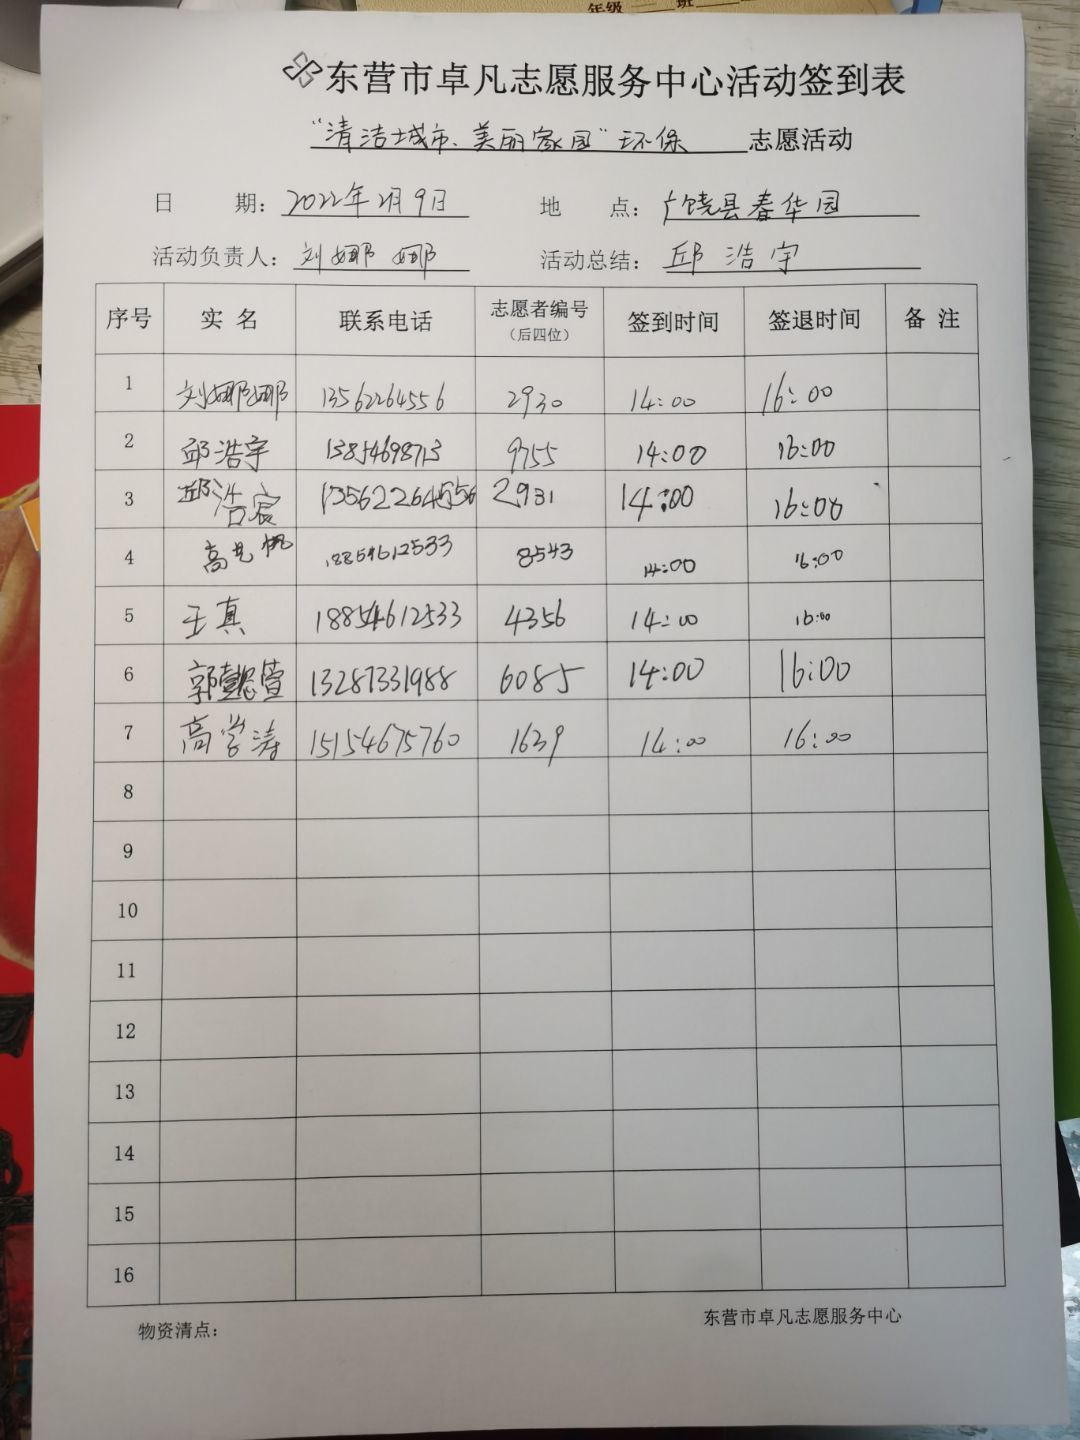 年级 班
东营市卓凡志愿服务中心活动签到表
“清洁城市、美丽家园”环保 志愿活动
日 期：2022年2月9日 地 点：广饶县春华园
活动负责人：刘娜娜 活动总结：邱浩宇
序号 实 名 联系电话 志愿者编号（后四位） 签到时间 签退时间 备 注
1 刘娜娜 13562264556 2930 14:00 16:00
2 邱浩宇 13854698713 9755 14:00 16:00
3 邱浩宸 13562264556 2931 14:00 16:00
4 高 帆 18854612533 8543 14:00 16:00
5 王真 18854612533 4356 14:00 16:00
6 郭懿萱 13287331988 6085 14:00 16:00
7 高学涛 15154675760 1639 14:00 16:00
8
9
10
11
12
13
14
15
16
物资清点： 东营市卓凡志愿服务中心